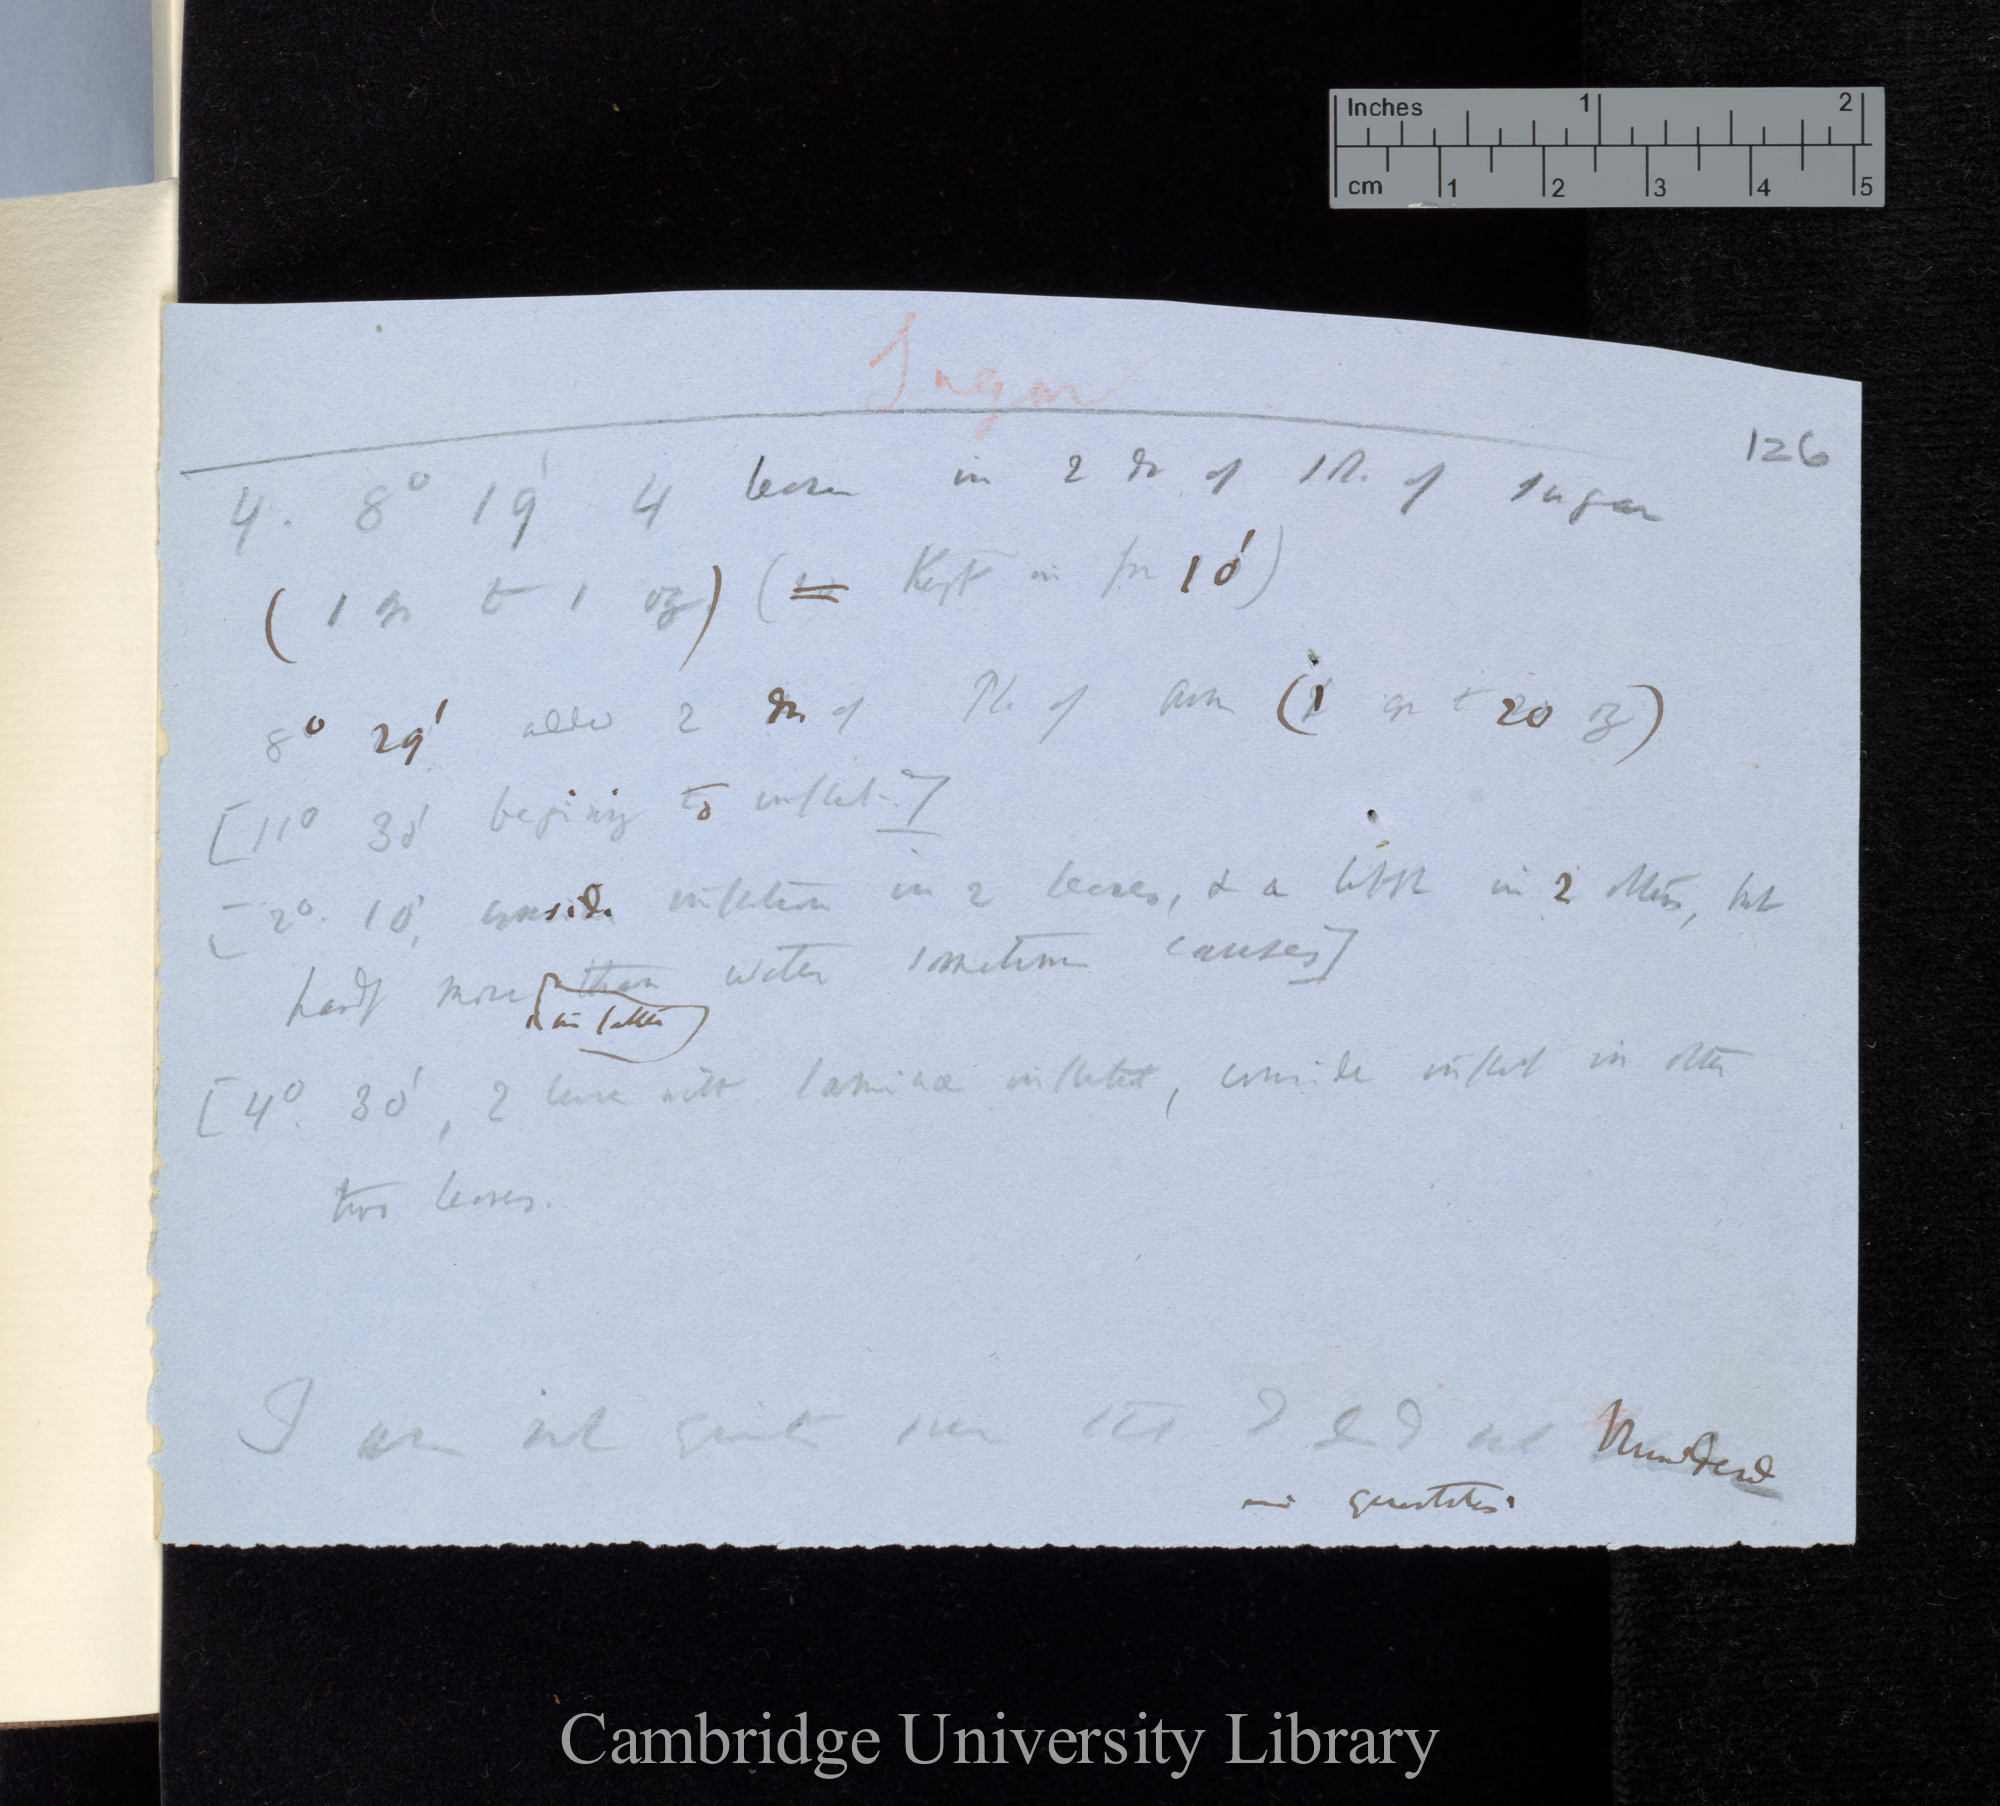 Inches 1 2
cm 1 2 3 4 5
Sugar
126
4. 8° 19' 4 leaves in 2 dr. of of Sugar
(1 gr to 1 oz) ( Kept in for 10')
8° 29' added 2 dr of of (1 gr to 20 oz)
[11° 30' begining to inflect.]
[2° 10', consid. inflection in 2 leaves, & a little in 2 others, but
hardly more than water sometimes causes]
(in latter)
[4° 30', 2 leaves with laminæ inflected, considle inflect in other
two leaves.
I am not quite sure that I did not blundered
in quantities.
Cambridge University Library